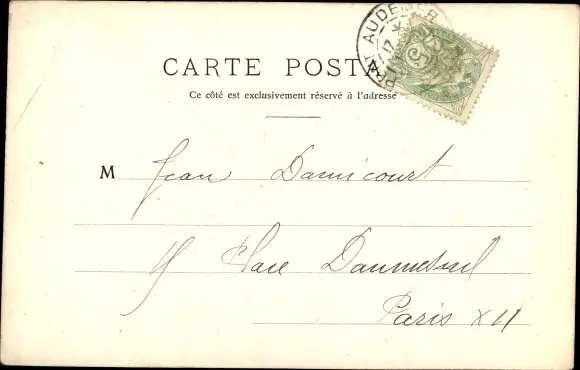 CARTE POSTA
Ce côté est exclusivement réservé à l'adresse
PONT AUDEMER
17
M Jean Damicourt
Place Daumesnil
Paris XII